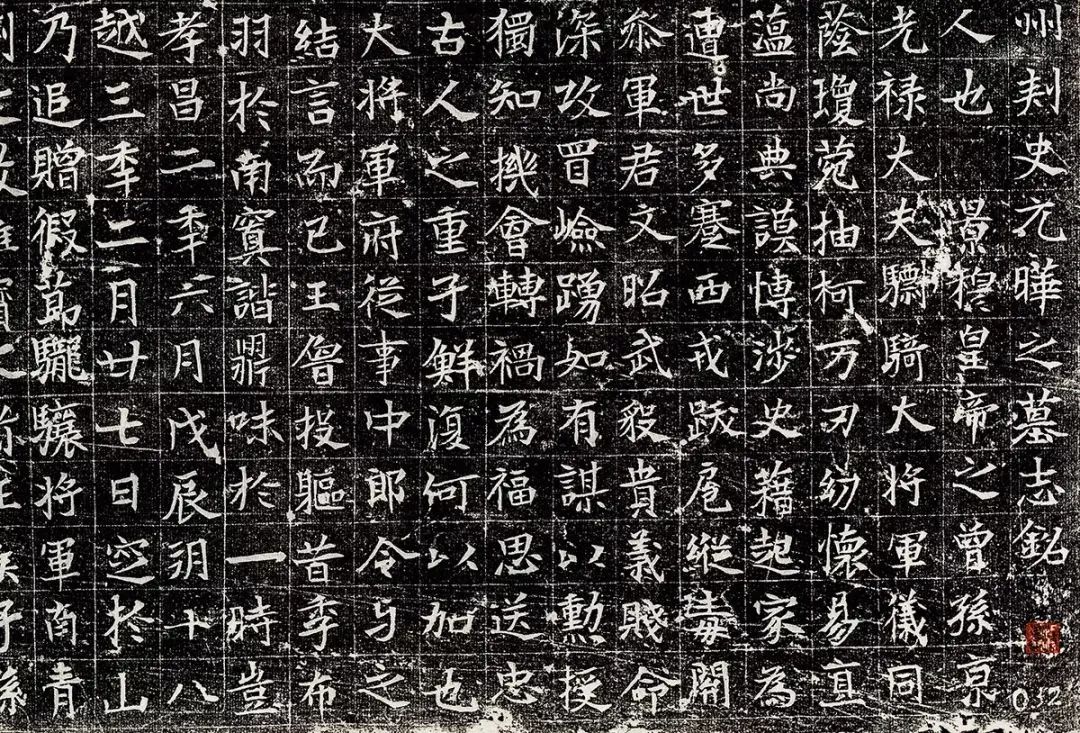 州刾史元曄之墓志銘
人也景穆皇帝之曾孫京
光禄大夫驃騎大将軍儀同
蔭瓊菀抽柯万刃幼懷易直
藴尚典謨愽涉史籍起家為
遭世多蹇西戎跋扈縱毒關
叅軍君文昭武毅貴義賤命
深故冒嶮踴如有謀以勲授
獨知機會轉禍為福思送忠
古人之重于鮮復何以加也
大将軍府從事中郎令与之
結言而已王曾投軀昔季布
羽於南㝠諧鼎味於一時豈
孝昌二年六月戊辰朔十八
越三年二月廿七日窆於山
乃追贈假節驪驤将軍南青
032